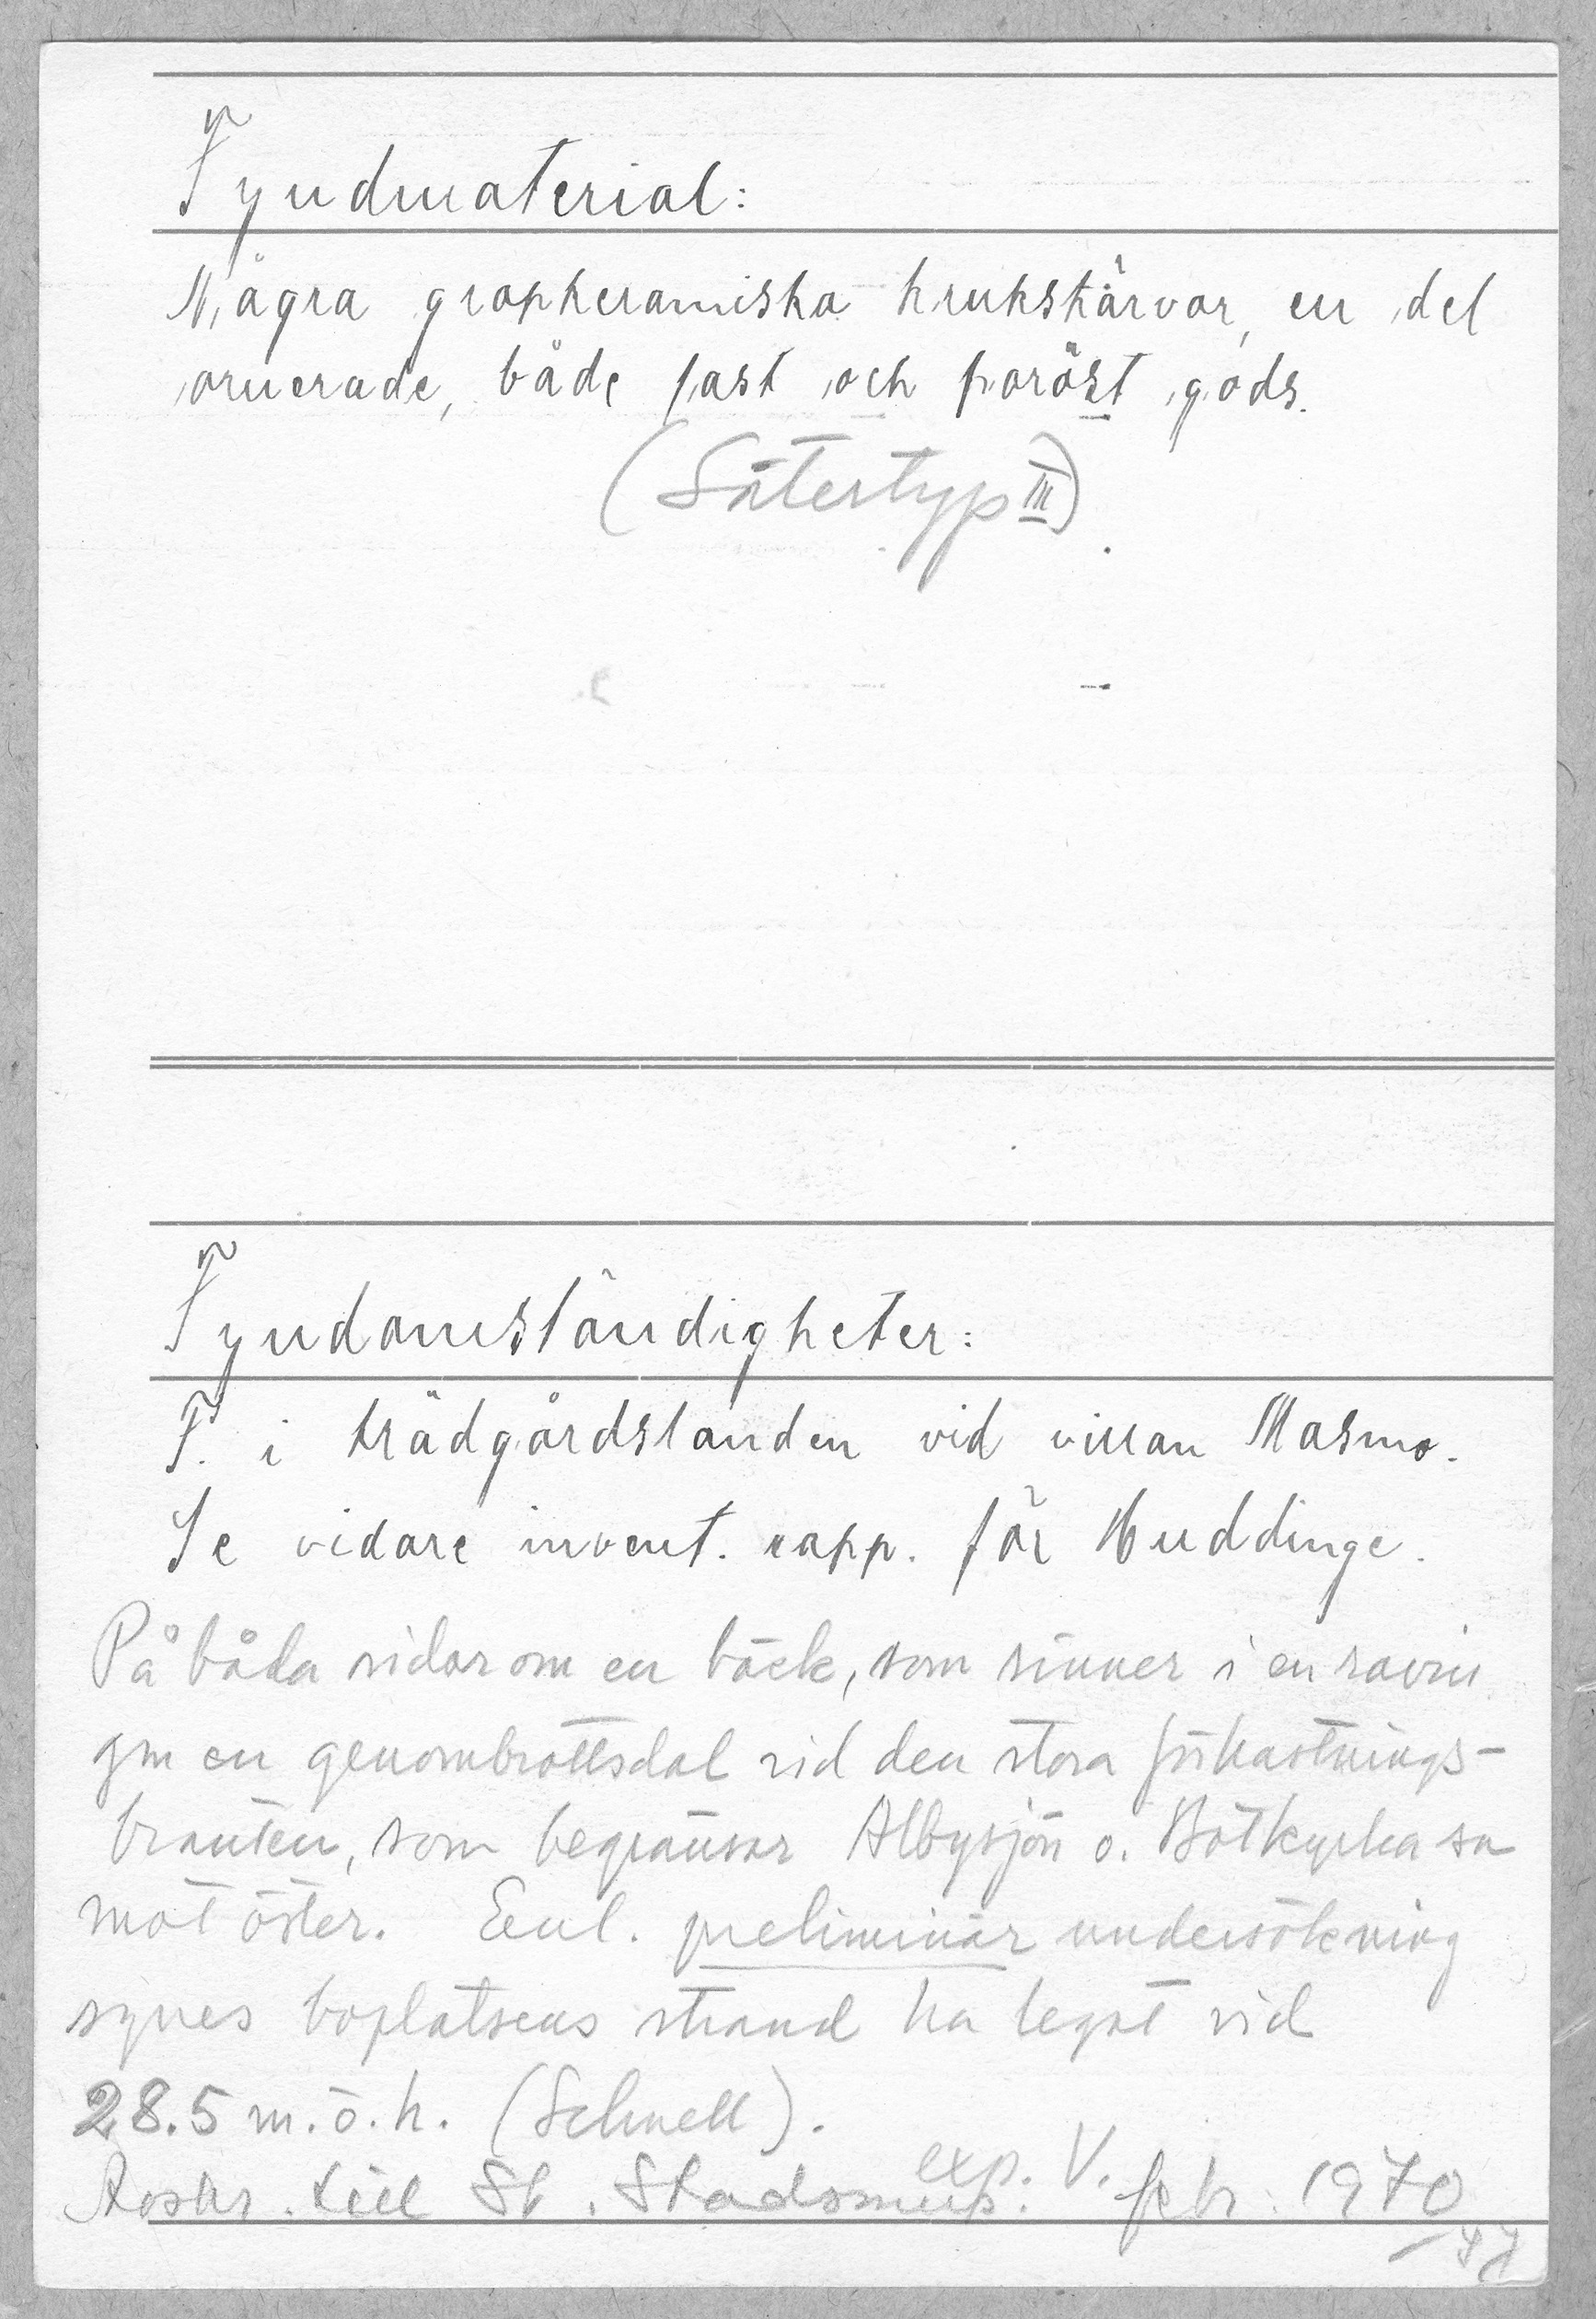 Fyndmaterial:
Några gropkeramiska krukskärvor, en del
ornerade, både fast och poröst gods.
(Sätertyp III)
Fyndomständigheter:
F. i trädgårdslanden vid villan Masmo.
Se vidare invent. rapp. för Huddinge.
På båda sidor om en bäck, som rinner i en ravin
gm en genombrottsdal vid den stora förkastnings-
branten, som begränsar Albysjön o. Botkyrka sn
mot öster. Enl. preliminär undersökning
synes boplatsens strand ha legat vid
28.5 m.ö.h. (Schnell).
Avskr. till St. Stadsmus. exp. V. febr. 1970